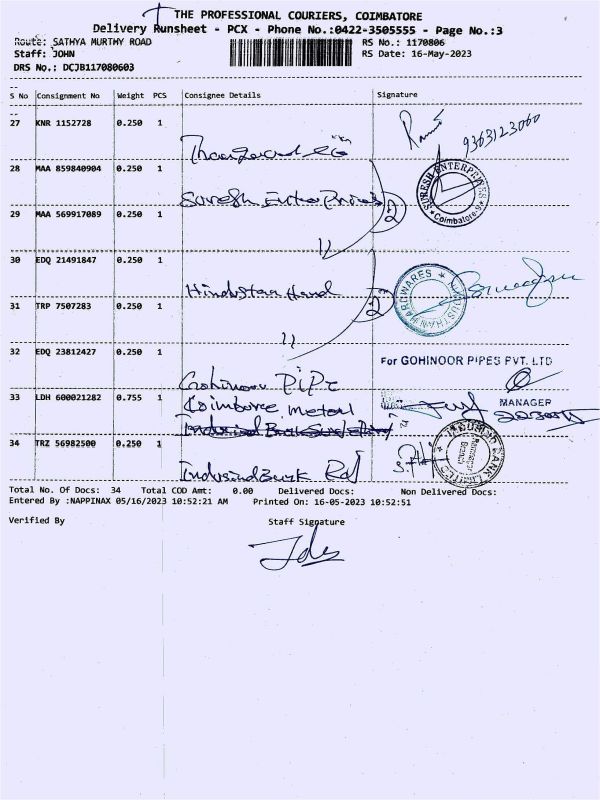 THE PROFESSIONAL COURIERS, COIMBATORE
Delivery Runsheet - PCX - Phone No.:0422-3505555 - Page No.:3
Route: SATHYA MURTHY ROAD
RS No.: 1170806
Staff: JOHN
RS Date: 16-May-2023
DRS No.: DCJB117080603
S No Consignment No Weight PCS Consignee Details Signature
27 KNR 1152728 0.250 1
9363123060
28 MAA 859840904 0.250 1
Suresh Enterprises
SURESH ENTERPRISES * Coimbatore-9 *
29 MAA 569917089 0.250 1
2
30 EDQ 21491847 0.250 1
Hindustan Hard
HINDUSTHAN HARDWARES
31 TRP 7507283 0.250 1
2
32 EDQ 23812427 0.250 1
Gohinoor Pipe
For GOHINOOR PIPES PVT. LTD
MANAGER
33 LDH 600021282 0.755 1
Coimbore metal
34 TRZ 56982500 0.250 1
Indusind Bank
INDUSIND BANK LIMITED
Total No. Of Docs: 34 Total COD Amt: 0.00 Delivered Docs: Non Delivered Docs:
Entered By :NAPPINAX 05/16/2023 10:52:21 AM Printed On: 16-05-2023 10:52:51
Verified By Staff Signature